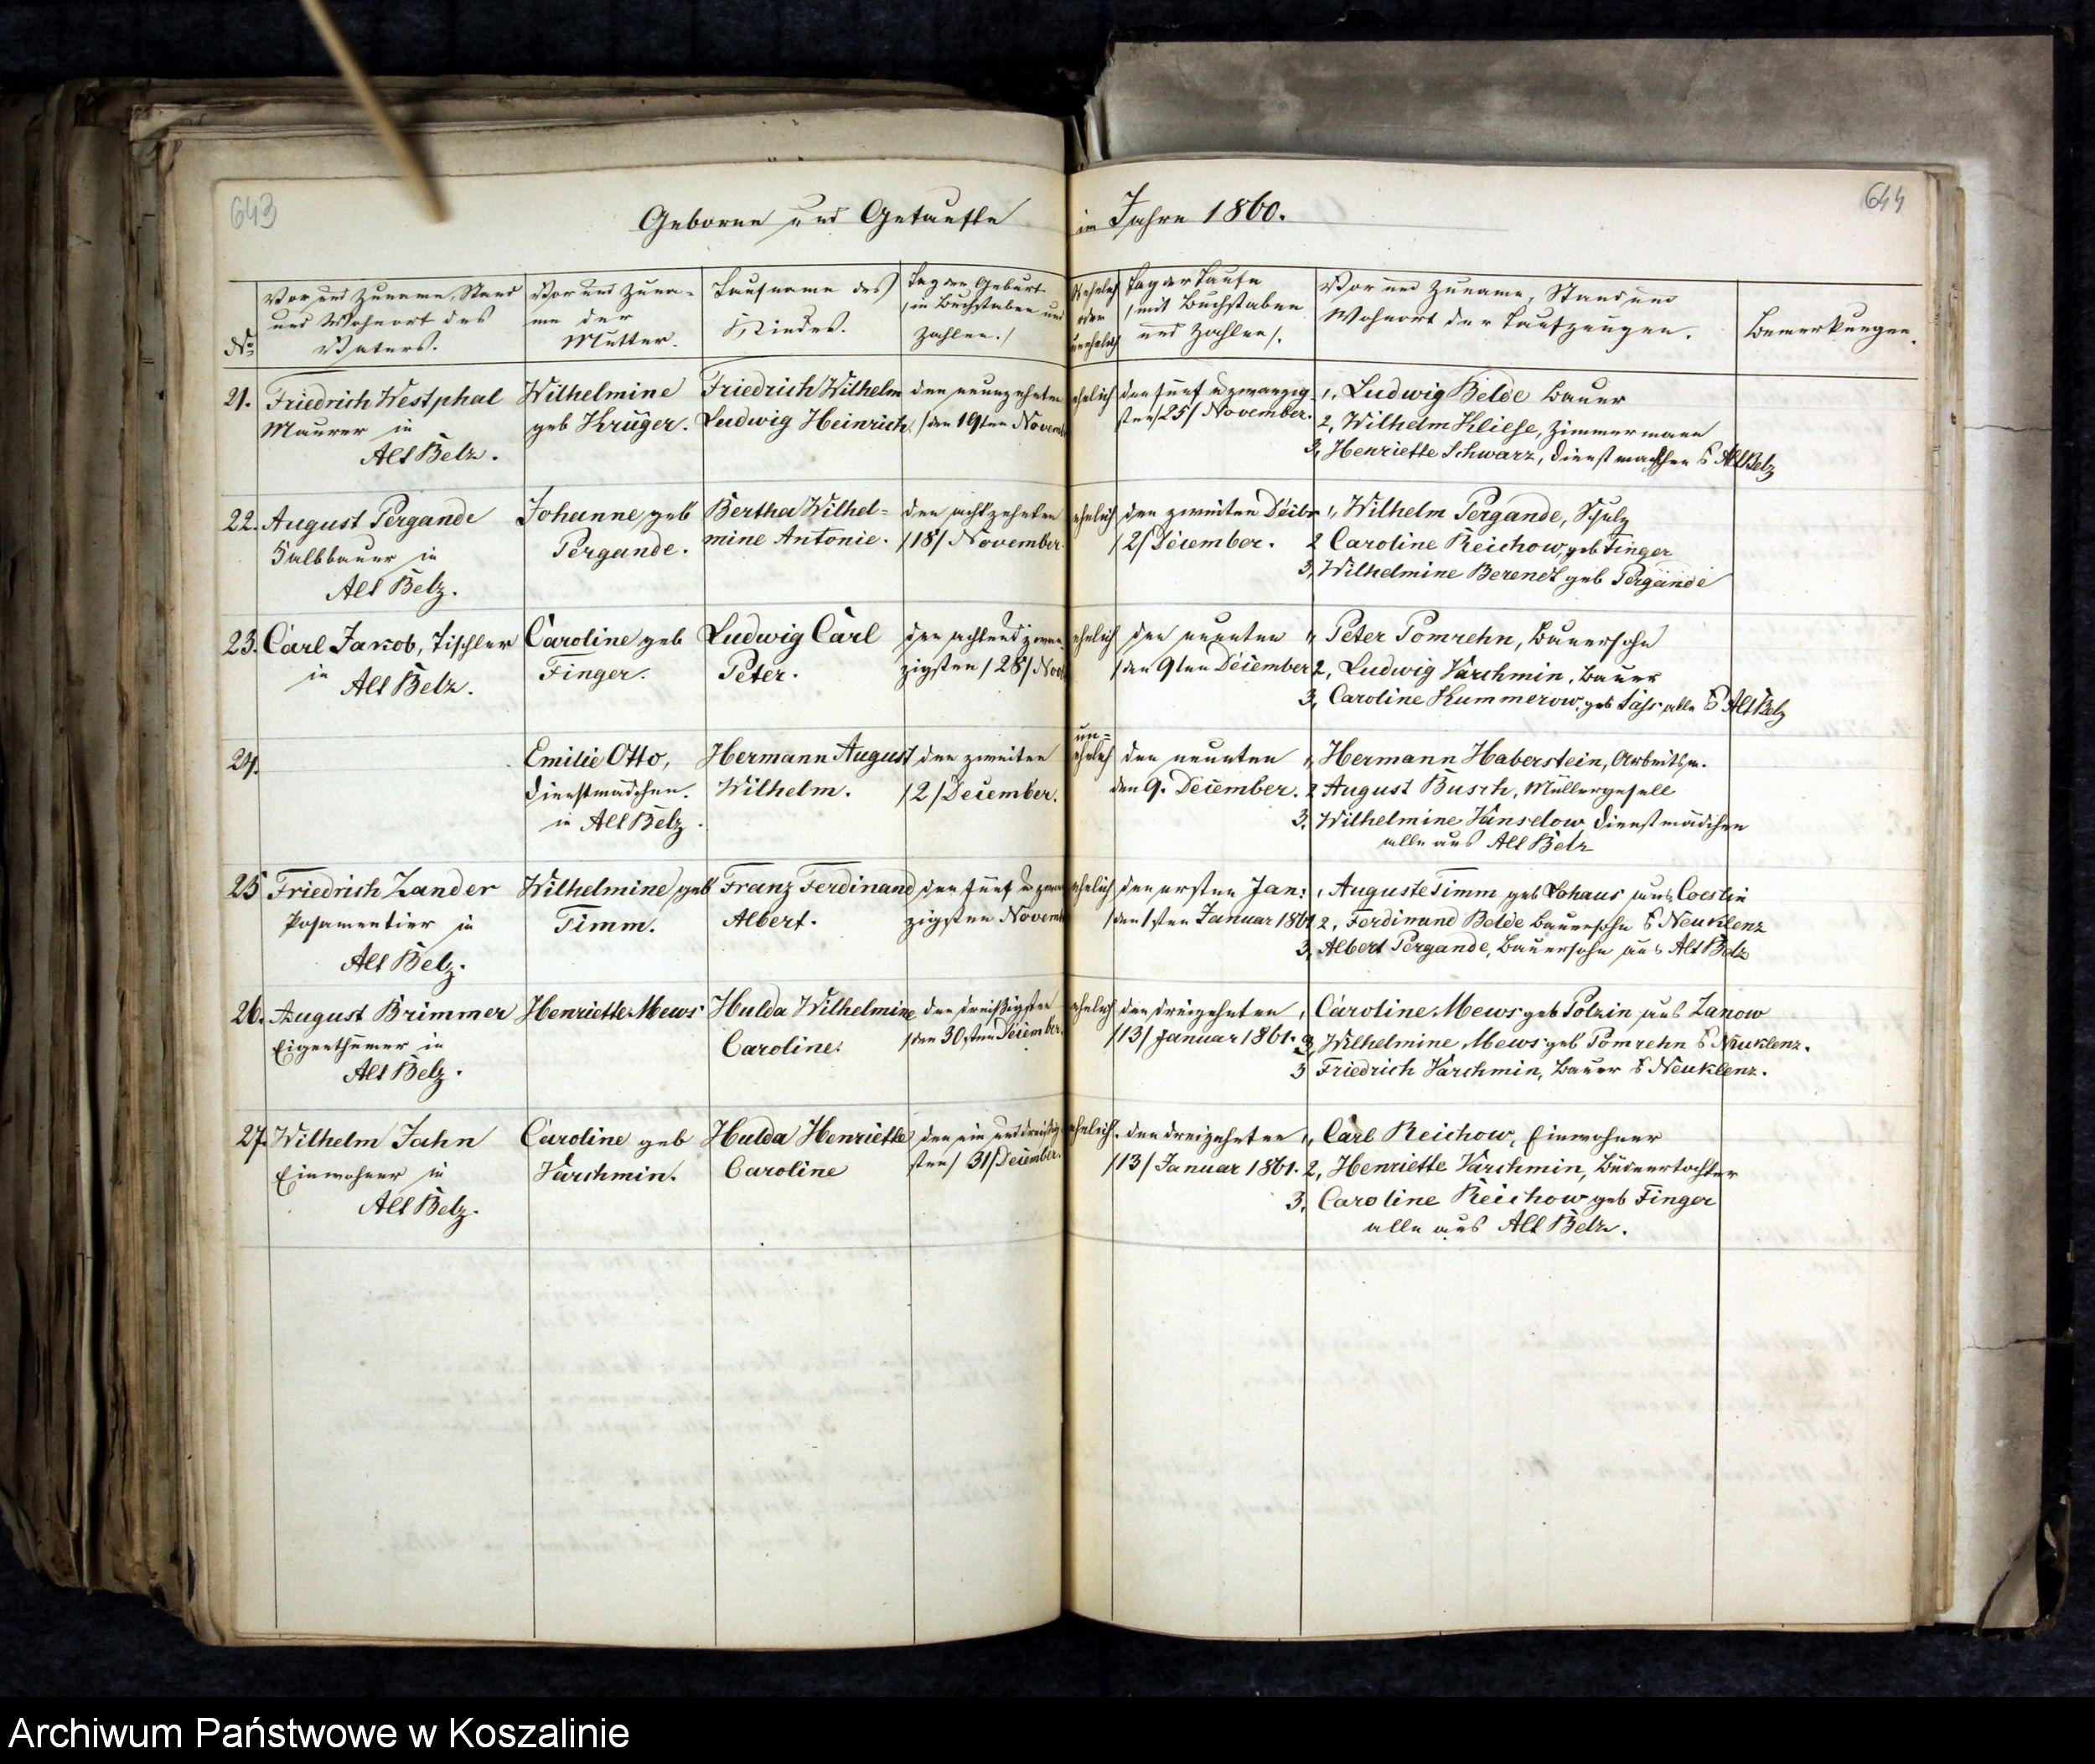 643
644
Geborne und Getaufte
im Jahre 1860.
No
Vor und Zuname, Stand
und Wohnort des
Vaters.
Vor und Zuna-
me der
Mutter.
Taufname des
Kindes.
Tag der Geburt
/in Buchstaben und
Zahlen./
Ehelich
oder
unehelich
Tag der Taufe
/mit Buchstaben
und Zahlen/.
Vor und Zuname, Stand und
Wohnort der Taufzeugen.
Bemerkungen.
21.
Friedrich Westphal
Maurer in
Alt Belz.
Wilhelmine
geb Krüger.
Friedrich Wilhelm
Ludwig Heinrich
den neunzehnten
/den 19ten Novemb
ehelich
den fünf u zwanzig
sten/25/ November.
1, Ludwig Belde Bauer
2, Wilhelm Kliese, Zimmermann
3, Henriette Schwarz, Dienstmädchen Alt Belz
22.
August Pergande
Halbbauer in
Alt Belz.
Johanne geb
Pergande.
Bertha Wilhel=
mine Antonie.
den achtzehnten
/18/ November.
ehelich
den zweiten Decbr
/2/ December.
1, Wilhelm Pergande, Schulz
2 Caroline Reichow, geb Finger
3, Wilhelmine Berendt geb Pergande
23.
Carl Jakob, Tischler
in
Alt Belz.
Caroline geb
Finger.
Ludwig Carl
Peter.
den acht und zwan
zigsten /28/ Nov
ehelich
den neunten
/den 9ten December
1, Peter Pomrehn, Bauersohn
2, Ludwig Varchmin, Bauer
3, Caroline Kummerow, geb alle Alt Belz
24.
Emilie Otto,
Dienstmädchen.
in Alt Belz.
Hermann August
Wilhelm.
den zweiten
/2/ December.
un=
ehelich
den neunten
den 9. December.
1, Hermann Haberstein, Arbeitsm.
2 August Busch, Müllergesell
3, Wilhelmine Vanselow Dienstmädchen
alle aus Alt Belz
25
Friedrich Zander
Posamentier in
Alt Belz.
Wilhelmine geb
Timm.
Franz Ferdinand
Albert.
den fünf u zwan
zigsten Novemb
ehelich
den ersten Jan:
/den 1sten Januar 1861
1, Auguste Timm geb aus Coeslin
2, Ferdinand Belde Bauersohn Neuklenz
3, Albert Pergande, Bauersohn aus Alt Belz
26.
August Brimmer
Eigenthümer in
Alt Belz.
Henriette Mews
Hulda Wilhelmine
Caroline.
den dreißigsten
/den 30sten December.
ehelich
den dreizehnten
/13/ Januar 1861.
1, Caroline Mews geb Polzin aus Zanow
2, Wilhelmine Mews geb Pomrehn Neuklenz.
3 Friedrich Varchmin, Bauer Neuklenz.
27.
Wilhelm Jahn
Einwohner in
Alt Belz.
Caroline geb
Varchmin.
Hulda Henriette
Caroline
den ein und dreißig
sten/ 31/ December.
ehelich.
den dreizehnten
/13/ Januar 1861.
1, Carl Reichow, Einwohner
2, Henriette Varchmin, Büdnertochter
3, Caroline Reichow geb Finger
alle aus Alt Belz.
Archiwum Państwowe w Koszalinie